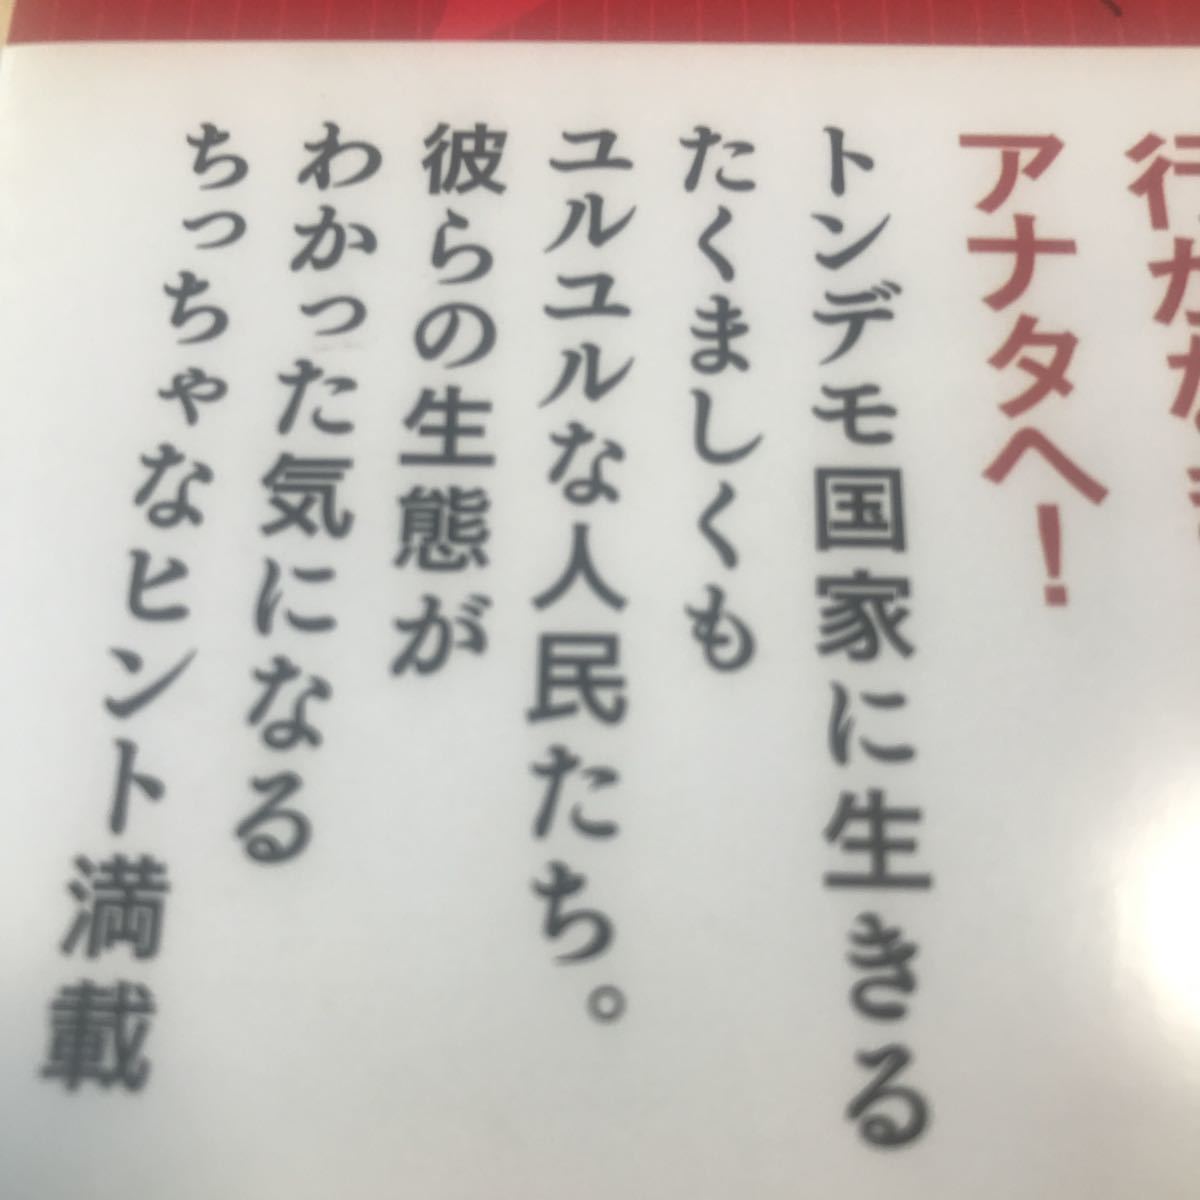 アナタへ!
トンデモ国家に生きる
たくましくも
ユルユルな人民たち。
彼らの生態が
わかった気になる
ちっちゃなヒント満載